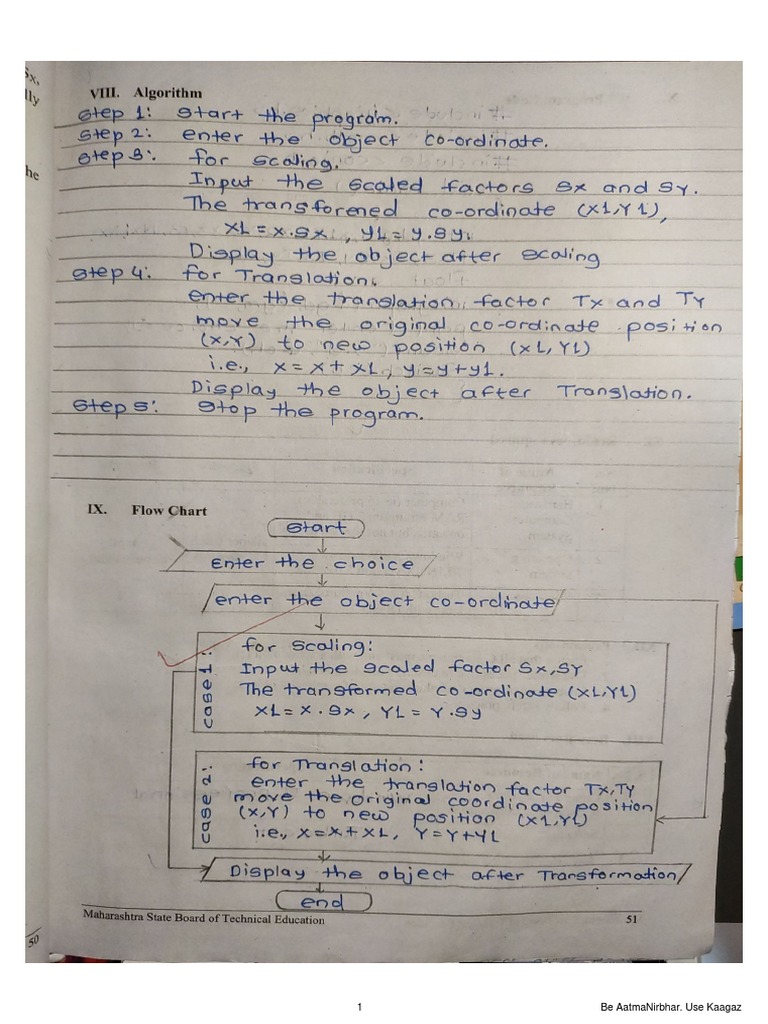 Sx,
lly
he
VIII. Algorithm
Step 1: Start the program.
Step 2: enter the object co-ordinate.
Step 3: for scaling.
Input the scaled factors Sx and SY.
The transforened co-ordinate (X1,Y1),
X1 = x.sx , Y1 = y.sy.
Display the object after scaling
Step 4: for Translation.
enter the translation factor Tx and TY
move the original co-ordinate position
(X,Y) to new position (X1,Y1)
i.e., x = x + x1 , y = y + y1.
Display the object after Translation.
Step 5: Stop the program.
IX. Flow Chart
Start
Enter the choice
enter the object co-ordinate
case 1:
for Scaling:
Input the scaled factor Sx,SY
The transformed co-ordinate (X1,Y1)
X1 = X.Sx , Y1 = Y.Sy
case 2:
for Translation:
enter the translation factor Tx,Ty
move the original coordinate position
(X,Y) to new position (X1,Y1)
i.e., X = X + X1, Y = Y + Y1
Display the object after Transformation
end
Maharashtra State Board of Technical Education 51
50
1 Be AatmaNirbhar. Use Kaagaz